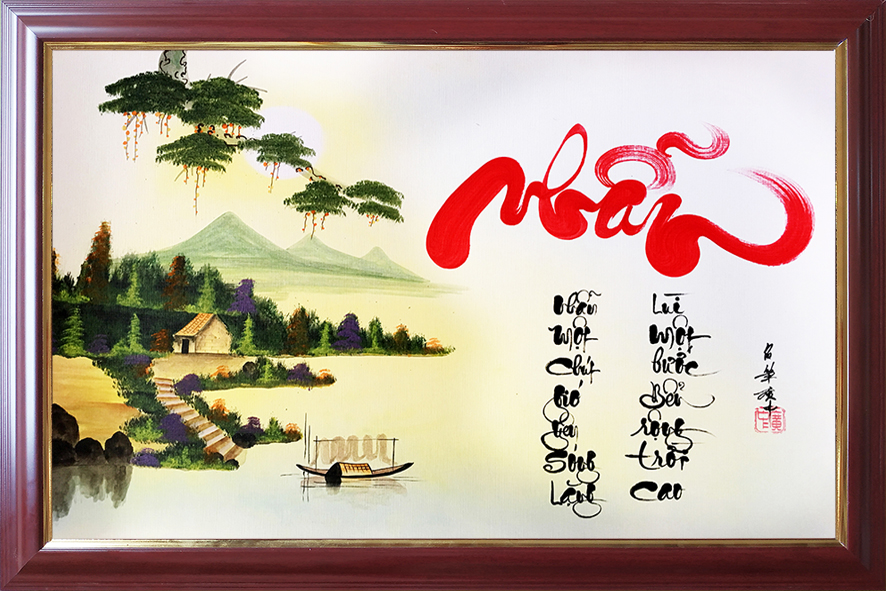 Nhẫn
Nhẫn
Một
Chút
Gió
Yên
Sóng
Lặng
Lùi
Một
Bước
Bể
rộng
trời
Cao